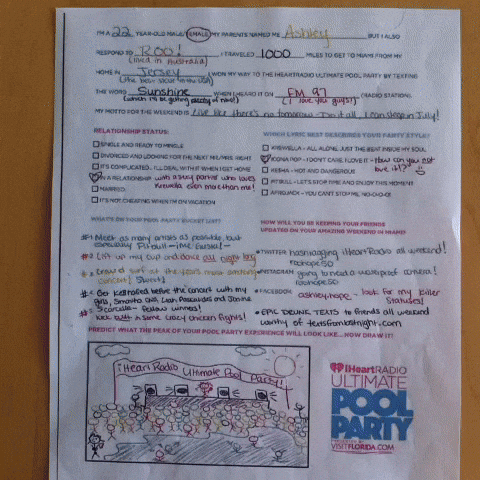 I'M A 22 YEAR-OLD MALE/FEMALE. MY PARENTS NAMED ME Ashley BUT I ALSO
RESPOND TO ROO! I TRAVELED 1000 MILES TO GET TO MIAMI FROM MY
(lived in Australia)
HOME IN Jersey I WON MY WAY TO THE IHEARTRADIO ULTIMATE POOL PARTY BY TEXTING
THE WORD Sunshine WHEN I HEARD IT ON FM 97 (RADIO STATION).
(which I'll be getting plenty of now!) (I love you guys!)
MY MOTTO FOR THE WEEKEND IS Live like there's no tomorrow. Do it all, I can sleep in July!
RELATIONSHIP STATUS:
SINGLE AND READY TO MINGLE
DIVORCED AND LOOKING FOR THE NEXT MR./MRS. RIGHT
IT'S COMPLICATED... I'LL DEAL WITH IT WHEN I GET HOME
IN A RELATIONSHIP with a sexy partner who loves
Krewella even more than me!
MARRIED
IT'S NOT CHEATING WHEN I'M ON VACATION
WHICH LYRIC BEST DESCRIBES YOUR PARTY STYLE?
KREWELLA - ALL ALONE, JUST THE BEAT INSIDE MY SOUL
ICONA POP - I DON'T CARE I LOVE IT - How can you not
love it!?
KE$HA - HOT AND DANGEROUS
PITBULL - LET'S STOP TIME AND ENJOY THIS MOMENT
AFROJACK - YOU CAN'T STOP ME, NO-O-O-O
WHAT'S ON YOUR POOL PARTY BUCKET LIST?
#1 Meet as many artists as possible but
especially Pitbull
#2 Lift up my cup and dance all night long
#3 Crowd surf at the years most smoking
concert!
#4 Get Ke$ha'ed before the concert with my
girls,
fellow winners!
#5 kick butt in some crazy chicken fights!
HOW WILL YOU BE KEEPING YOUR FRIENDS
UPDATED ON YOUR AMAZING WEEKEND IN MIAMI?
TWITTER hashtagging iHeartRadio all weekend!
roohope50
INSTAGRAM going to need a waterproof camera!
roohope50
FACEBOOK ashley.hope - look for my killer
Statuses!
EPIC DRUNK TEXTS to friends all weekend
worthy of textsfromlastnight.com
PREDICT WHAT THE PEAK OF YOUR POOL PARTY EXPERIENCE WILL LOOK LIKE... NOW DRAW IT!
iHeart Radio Ultimate Pool Party!
iHeartRADIO
ULTIMATE
POOL
PARTY
PRESENTED BY
VISITFLORIDA.COM